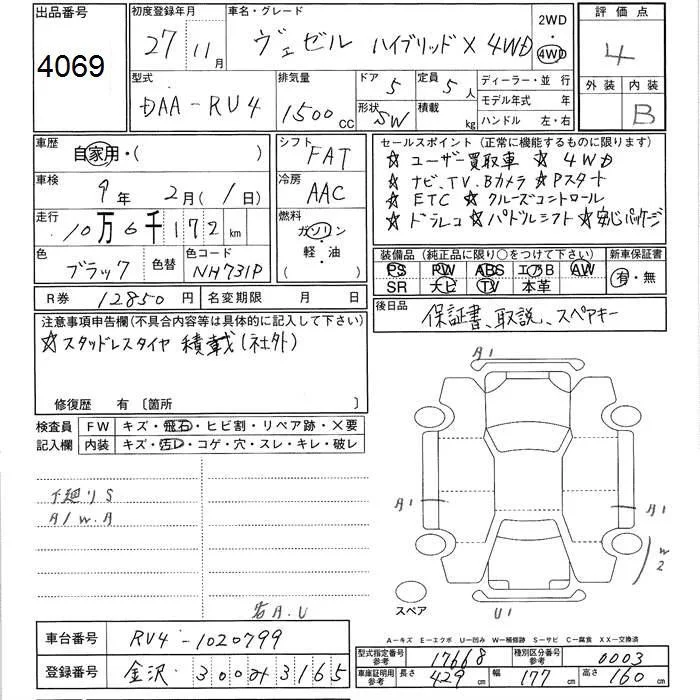 出品番号 4069
初度登録年月 27年 11月
車名・グレード ヴェゼル ハイブリッドX 4WD
2WD ・ 4WD
評価点 4
外装 内装 B
型式 DAA-RU4
排気量 1500cc
ドア 5 定員 5人
形状 SW 積載 kg
ディーラー・並 行
モデル年式 年
ハンドル 左・右
車歴 自家用・( )
シフト FAT
車検 9年 2月(1日)
冷房 AAC
走行 10万6千172km
燃料 ガソリン・軽・油
色 ブラック 色替 色コード NH731P
R券 12850円 名変期限 月 日
セールスポイント(正常に機能するものに限ります)
☆ユーザー買取車 ☆4WD
☆ナビ、TV、Bカメラ ☆Pスタート
☆ETC ☆クルーズコントロール
☆ドラレコ ☆パドルシフト ☆安心パッケージ
装備品(純正品に限り○をつけて下さい) 新車保証書
PS PW ABS エアB AW 有・無
SR ナビ TV 本革
後日品 保証書、取説、スペアキー
注意事項申告欄(不具合内容等は具体的に記入して下さい)
☆スタッドレスタイヤ 積載(社外)
修復歴 有〔箇所
検査員 FW キズ・飛石・ヒビ割・リペア跡・X要
記入欄 内装 キズ・汚れ・コゲ・穴・スレ・キレ・破レ
下廻りS
A/W.A
A1
A1
A1
W2
U1
スペア
A-キズ E-エクボ U-凹み W-補修跡 S-サビ C-腐食 XX-交換済
車台番号 RU4-1020799
登録番号 金沢 300 3165
型式指定番号 参考 17668 種別区分番号 参考 0003
車庫証明用 参考 長さ 429cm 幅 177cm 高さ 160cm